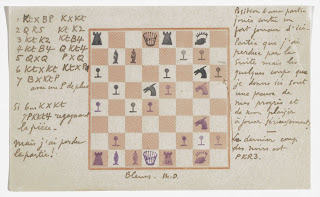 1 KtxBP KxKt
2 QR5 Kt K2
3 Kt K2 KtB4
4 KtB4 QKt4
5 QxQ PxQ
6 KtxKt KtxP
7 BxKtP
avec un P de plus
Si 6... KxKt
7PKKt4 regagnant
la pièce.
Mais j'ai perdu
la partie!
Bleus. M.D.
Position d'une partie
jouée contre un
fort joueur d'ici.
Partie que j'ai
perdue par la
suite mais les
quelques coups que
je donne ici sont
une preuve de
mes progrès et
de mon plaisir
à jouer sérieusement.
Le dernier coup
des noirs est
PKR3.